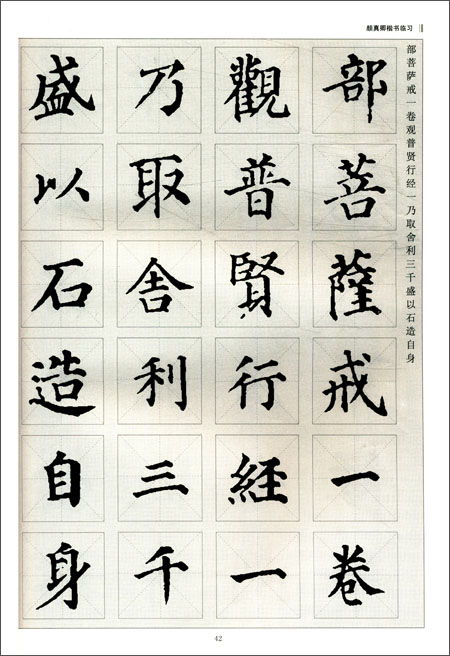 颜真卿楷书临习
部菩萨戒一卷观普贤行经一乃取舍利三千盛以石造自身
部菩薩戒一卷
觀普賢行經一
乃取舍利三千
盛以石造自身
42